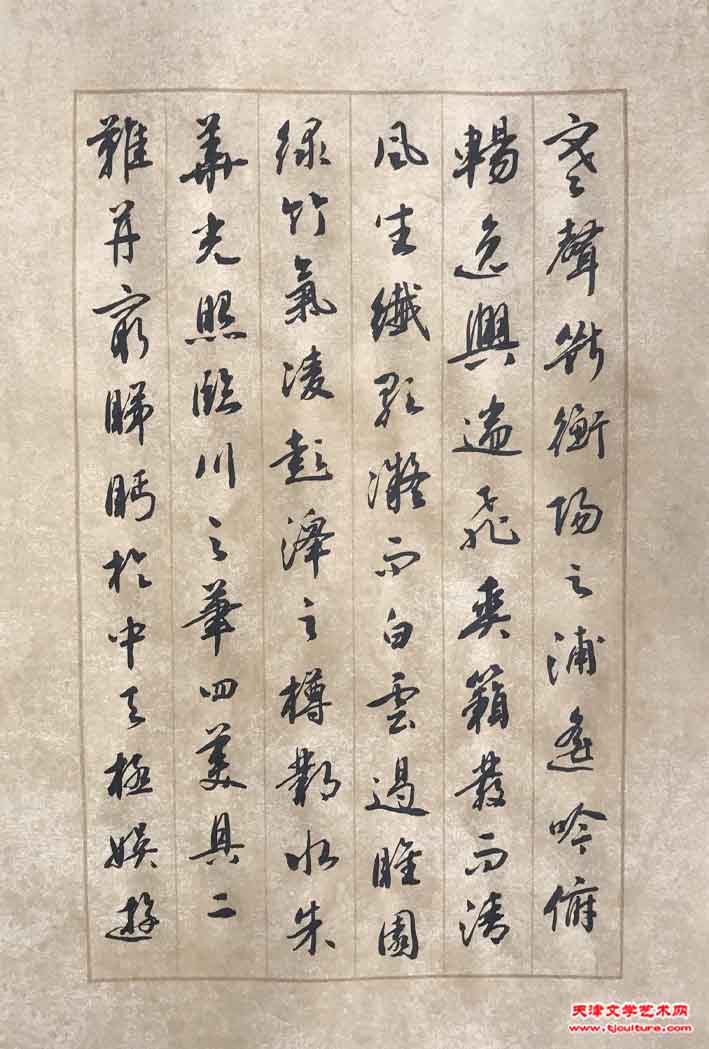 寒聲斷衡陽之浦遙吟俯
暢逸興遄飛爽籟發而清
風生纖歌凝而白雲遏睢園
綠竹氣凌彭澤之樽鄴水朱
華光照臨川之筆四美具二
難并窮睇眄於中天極娛遊
天津文学艺术网
www.tjculture.com